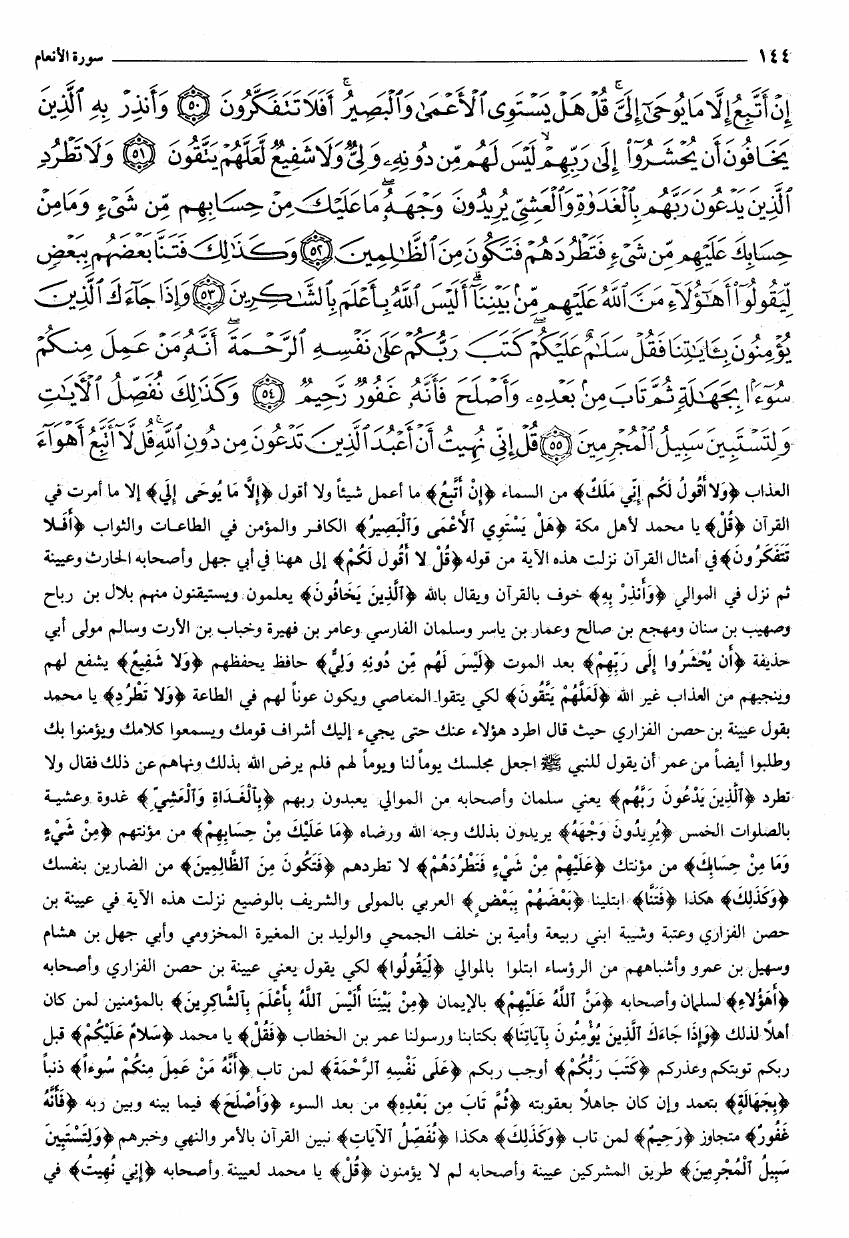 ١٤٤ سورة الأنعام
إِنْ أَتَّبِعُ إِلَّا مَا يُوحَىٰٓ إِلَيَّ ۚ قُلْ هَلْ يَسْتَوِى ٱلْأَعْمَىٰ وَٱلْبَصِيرُ ۚ أَفَلَا تَتَفَكَّرُونَ ﴿٥٠﴾ وَأَنذِرْ بِهِ ٱلَّذِينَ
يَخَافُونَ أَن يُحْشَرُوٓا۟ إِلَىٰ رَبِّهِمْ ۙ لَيْسَ لَهُم مِّن دُونِهِۦ وَلِيٌّ وَلَا شَفِيعٌ لَّعَلَّهُمْ يَتَّقُونَ ﴿٥١﴾ وَلَا تَطْرُدِ
ٱلَّذِينَ يَدْعُونَ رَبَّهُم بِٱلْغَدَوٰةِ وَٱلْعَشِيِّ يُرِيدُونَ وَجْهَهُۥ ۖ مَا عَلَيْكَ مِنْ حِسَابِهِم مِّن شَىْءٍ وَمَا مِنْ
حِسَابِكَ عَلَيْهِم مِّن شَىْءٍ فَتَطْرُدَهُمْ فَتَكُونَ مِنَ ٱلظَّٰلِمِينَ ﴿٥٢﴾ وَكَذَٰلِكَ فَتَنَّا بَعْضَهُم بِبَعْضٍ
لِّيَقُولُوٓا۟ أَهَٰٓؤُلَآءِ مَنَّ ٱللَّهُ عَلَيْهِم مِّنۢ بَيْنِنَآ ۗ أَلَيْسَ ٱللَّهُ بِأَعْلَمَ بِٱلشَّٰكِرِينَ ﴿٥٣﴾ وَإِذَا جَآءَكَ ٱلَّذِينَ
يُؤْمِنُونَ بِـَٔايَٰتِنَا فَقُلْ سَلَٰمٌ عَلَيْكُمْ ۖ كَتَبَ رَبُّكُمْ عَلَىٰ نَفْسِهِ ٱلرَّحْمَةَ ۖ أَنَّهُۥ مَنْ عَمِلَ مِنكُمْ
سُوٓءًۢا بِجَهَٰلَةٍ ثُمَّ تَابَ مِنۢ بَعْدِهِۦ وَأَصْلَحَ فَأَنَّهُۥ غَفُورٌ رَّحِيمٌ ﴿٥٤﴾ وَكَذَٰلِكَ نُفَصِّلُ ٱلْأٓيَٰتِ
وَلِتَسْتَبِينَ سَبِيلُ ٱلْمُجْرِمِينَ ﴿٥٥﴾ قُلْ إِنِّى نُهِيتُ أَنْ أَعْبُدَ ٱلَّذِينَ تَدْعُونَ مِن دُونِ ٱللَّهِ ۚ قُل لَّآ أَتَّبِعُ أَهْوَآءَ
العذاب ﴿وَلا أَقُولُ لَكُم إِنِّي مَلَكٌ﴾ من السماء ﴿إِنْ أَتَّبِعُ﴾ ما أعمل شيئاً ولا أقول ﴿إِلَّا مَا يُوحَى إِلَيَّ﴾ إلا ما أمرت في
القرآن ﴿قُلْ﴾ يا محمد لأهل مكة ﴿هَلْ يَسْتَوِي الأَعْمَى وَالْبَصِيرُ﴾ الكافر والمؤمن في الطاعات والثواب ﴿أَفَلا
تَتَفَكَّرُونَ﴾ في أمثال القرآن نزلت هذه الآية من قوله ﴿قُلْ لا أَقُول لَكُمْ﴾ إلى ههنا في أبي جهل وأصحابه الحارث وعيينة
ثم نزل في الموالي ﴿وَأَنْذِرْ بِهِ﴾ خوف بالقرآن ويقال بالله ﴿ٱلَّذِينَ يَخَافُونَ﴾ يعلمون ويستيقنون منهم بلال بن رباح
وصهيب بن سنان ومهجع بن صالح وعمار بن ياسر وسلمان الفارسي وعامر بن فهيرة وخباب بن الأرت وسالم مولى أبي
حذيفة ﴿أَن يُحْشَرُوا إِلَى رَبِّهِمْ﴾ بعد الموت ﴿لَيْسَ لَهُم مِّن دُونِهِ وَلِيٌّ﴾ حافظ يحفظهم ﴿وَلا شَفِيعٌ﴾ يشفع لهم
وينجيهم من العذاب غير الله ﴿لَعَلَّهُمْ يَتَّقُونَ﴾ لكي يتقوا المعاصي ويكون عوناً لهم في الطاعة ﴿وَلا تَطْرُدِ﴾ يا محمد
بقول عيينة بن حصن الفزاري حيث قال اطرد هؤلاء عنك حتى يجيء إليك أشراف قومك ويسمعوا كلامك ويؤمنوا بك
وطلبوا أيضاً من عمر أن يقول للنبي ﷺ اجعل مجلسك يوماً لنا ويوماً لهم فلم يرض الله بذلك ونهاهم عن ذلك فقال ولا
تطرد ﴿ٱلَّذِينَ يَدْعُونَ رَبَّهُم﴾ يعني سلمان وأصحابه من الموالي يعبدون ربهم ﴿بِٱلْغَدَاةِ وَٱلْعَشِيِّ﴾ غدوة وعشية
بالصلوات الخمس ﴿يُرِيدُونَ وَجْهَهُ﴾ يريدون بذلك وجه الله ورضاه ﴿مَا عَلَيْكَ مِنْ حِسَابِهِمْ﴾ من مؤنتهم ﴿مِنْ شَيْءٍ
وَمَا مِنْ حِسَابِكَ﴾ من مؤنتك ﴿عَلَيْهِمْ مِنْ شَيْءٍ فَتَطْرُدَهُمْ﴾ لا تطردهم ﴿فَتَكُونَ مِنَ ٱلظَّالِمِينَ﴾ من الضارين بنفسك
﴿وَكَذَلِكَ﴾ هكذا ﴿فَتَنَّا﴾ ابتلينا ﴿بَعْضَهُمْ بِبَعْضٍ﴾ العربي بالمولى والشريف بالوضيع نزلت هذه الآية في عيينة بن
حصن الفزاري وعتبة وشيبة ابني ربيعة وأمية بن خلف الجمحي والوليد بن المغيرة المخزومي وأبي جهل بن هشام
وسهيل بن عمرو وأشباههم من الرؤساء ابتلوا بالموالي ﴿لِّيَقُولُوا﴾ لكي يقول يعني عيينة بن حصن الفزاري وأصحابه
﴿أَهَؤُلاءِ﴾ لسلمان وأصحابه ﴿مَنَّ اللَّهُ عَلَيْهِمْ﴾ بالإيمان ﴿مِنْ بَيْنِنَا أَلَيْسَ اللَّهُ بِأَعْلَمَ بِٱلشَّاكِرِينَ﴾ بالمؤمنين لمن كان
أهلاً لذلك ﴿وَإِذَا جَاءَكَ الَّذِينَ يُؤْمِنُونَ بِآيَاتِنَا﴾ بكتابنا ورسولنا عمر بن الخطاب ﴿فَقُلْ﴾ يا محمد ﴿سَلامٌ عَلَيْكُمْ﴾ قبل
ربكم توبتكم وعذركم ﴿كَتَبَ رَبُّكُمْ﴾ أوجب ربكم ﴿عَلَى نَفْسِهِ ٱلرَّحْمَةَ﴾ لمن تاب ﴿أَنَّهُ مَنْ عَمِلَ مِنكُمْ سُوءاً﴾ ذنباً
﴿بِجَهَالَةٍ﴾ بتعمد وإن كان جاهلاً بعقوبته ﴿ثُمَّ تَابَ مِن بَعْدِهِ﴾ من بعد السوء ﴿وَأَصْلَحَ﴾ فيما بينه وبين ربه ﴿فَأَنَّهُ
غَفُورٌ﴾ متجاوز ﴿رَحِيمٌ﴾ لمن تاب ﴿وَكَذَلِكَ﴾ هكذا ﴿نُفَصِّلُ ٱلآيَاتِ﴾ نبين القرآن بالأمر والنهي وخبرهم ﴿وَلِتَسْتَبِينَ
سَبِيلُ ٱلْمُجْرِمِينَ﴾ طريق المشركين عيينة وأصحابه لم لا يؤمنون ﴿قُلْ﴾ يا محمد لعيينة وأصحابه ﴿إِنِّي نُهِيتُ﴾ في